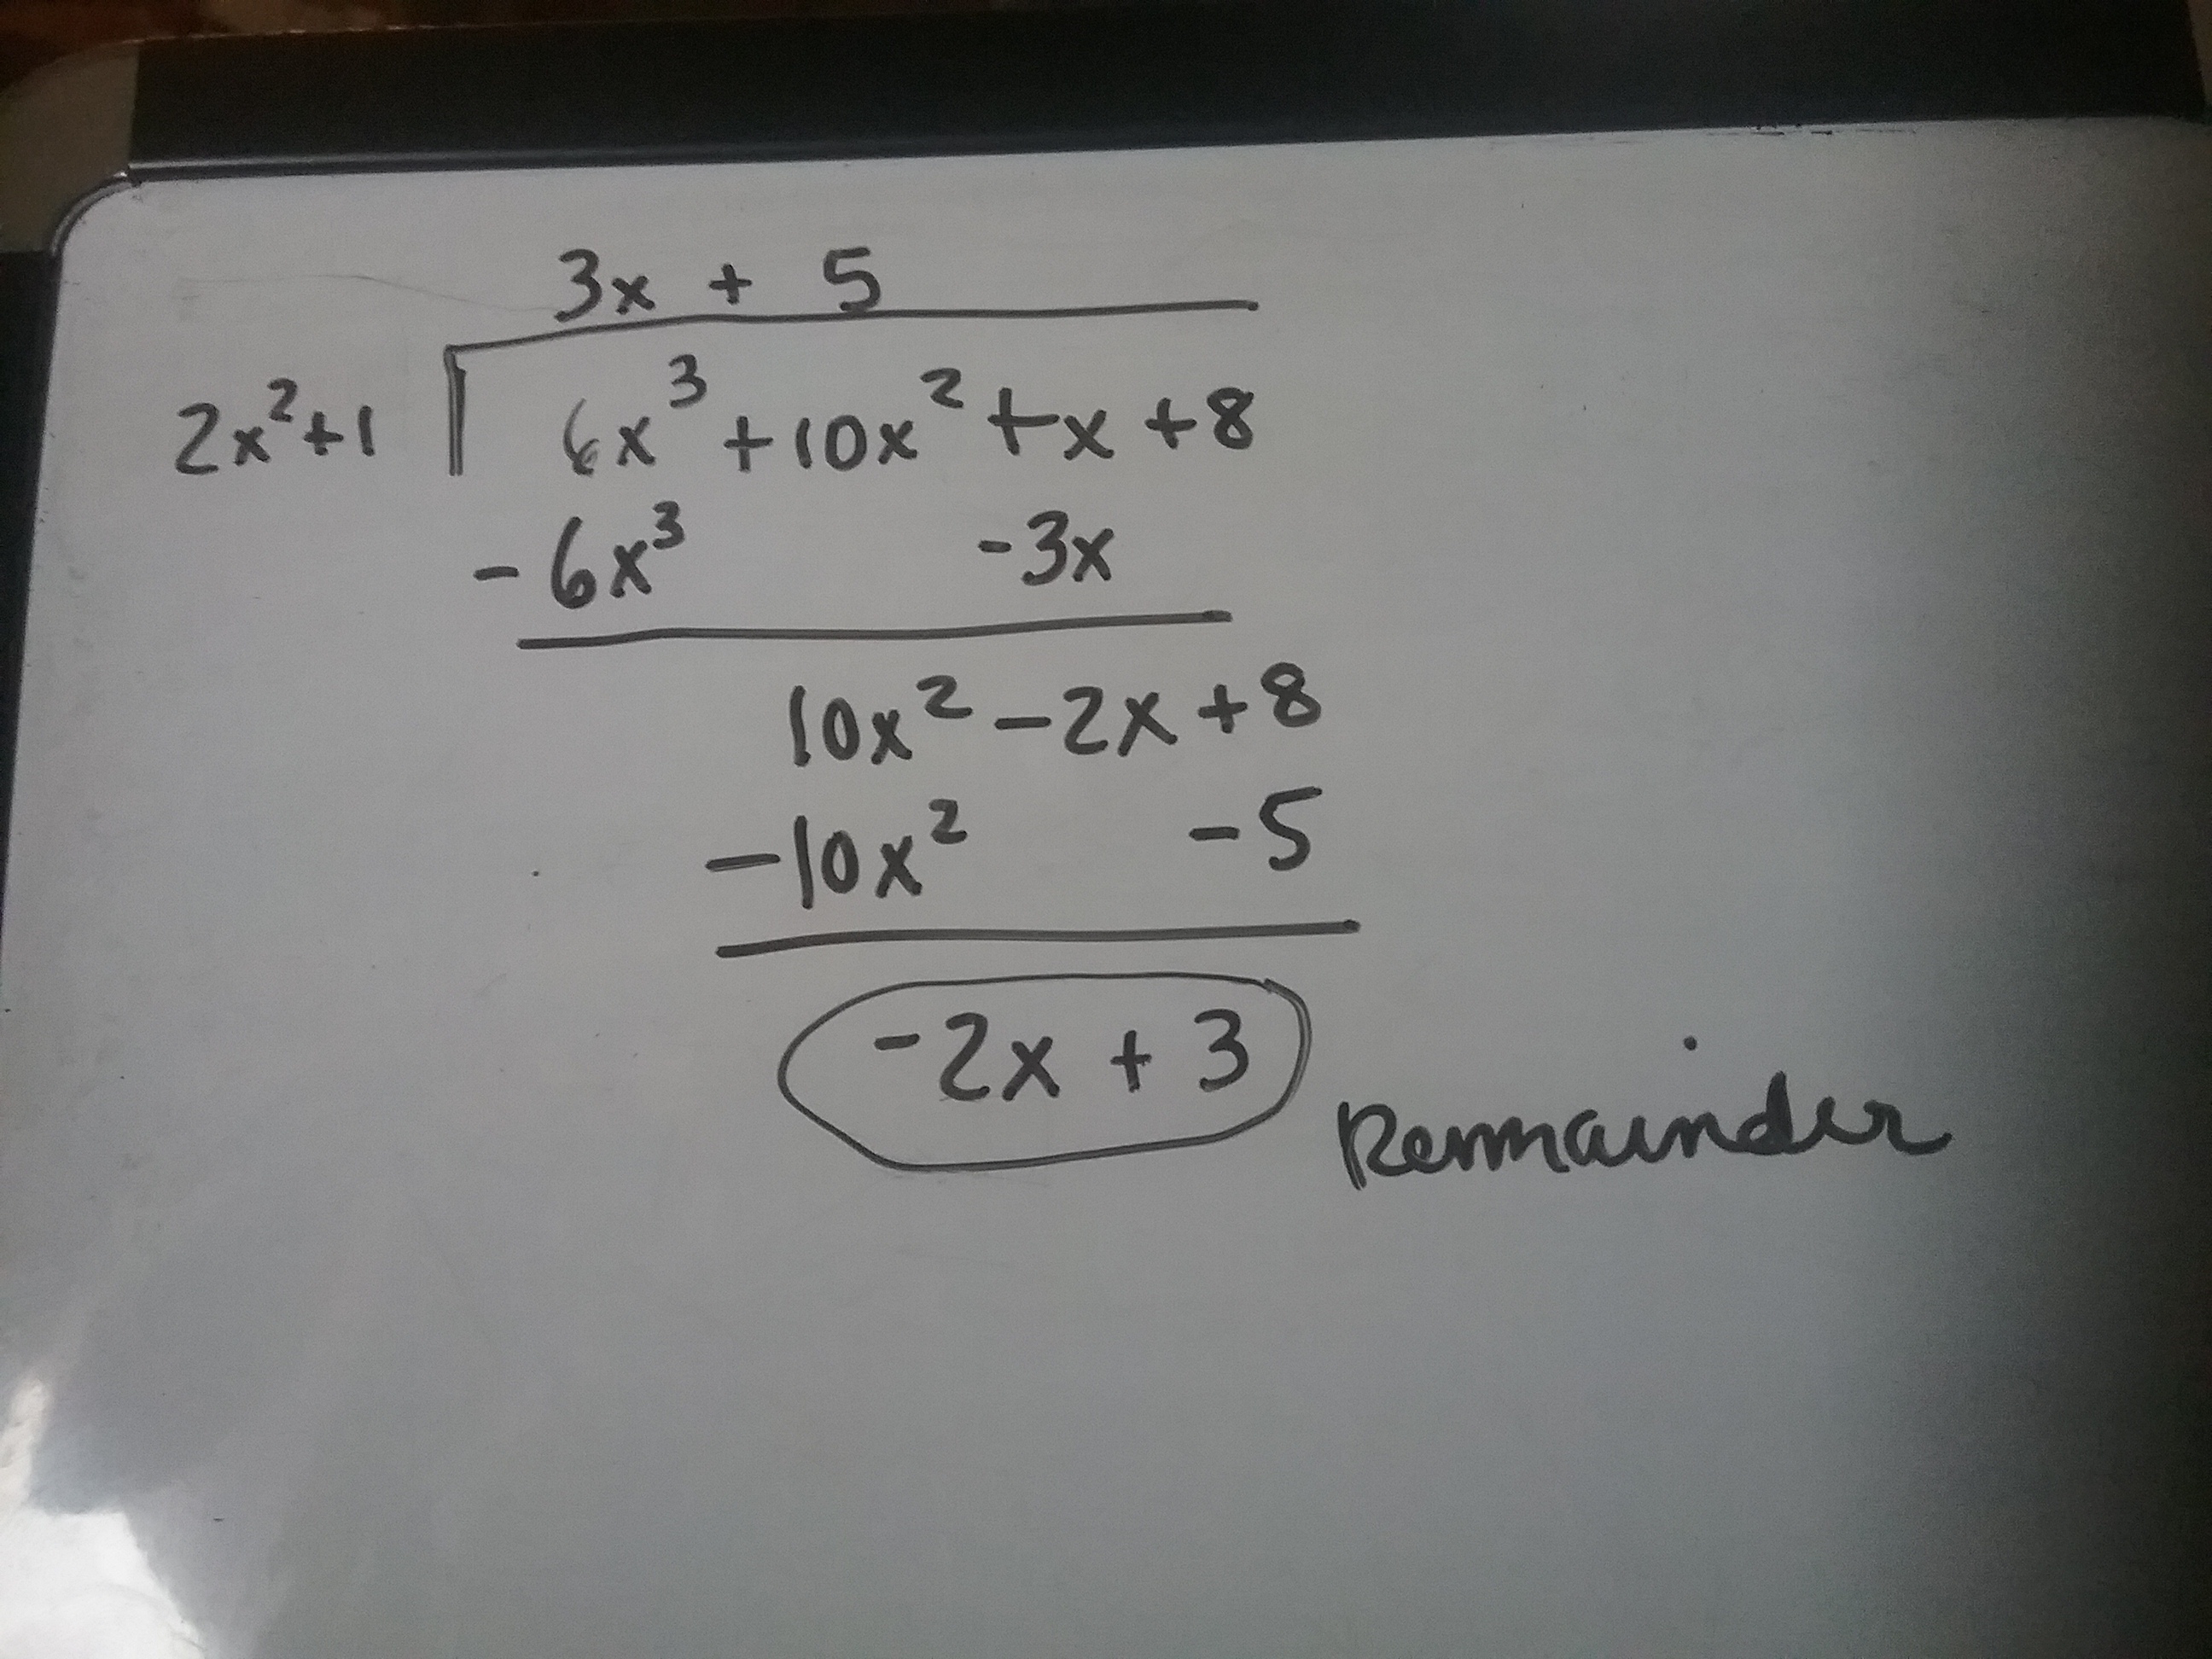 3x + 5
2x²+1 6x³ +10x² +x +8
- 6x³ -3x
10x² -2x +8
-10x² -5
-2x + 3
Remainder